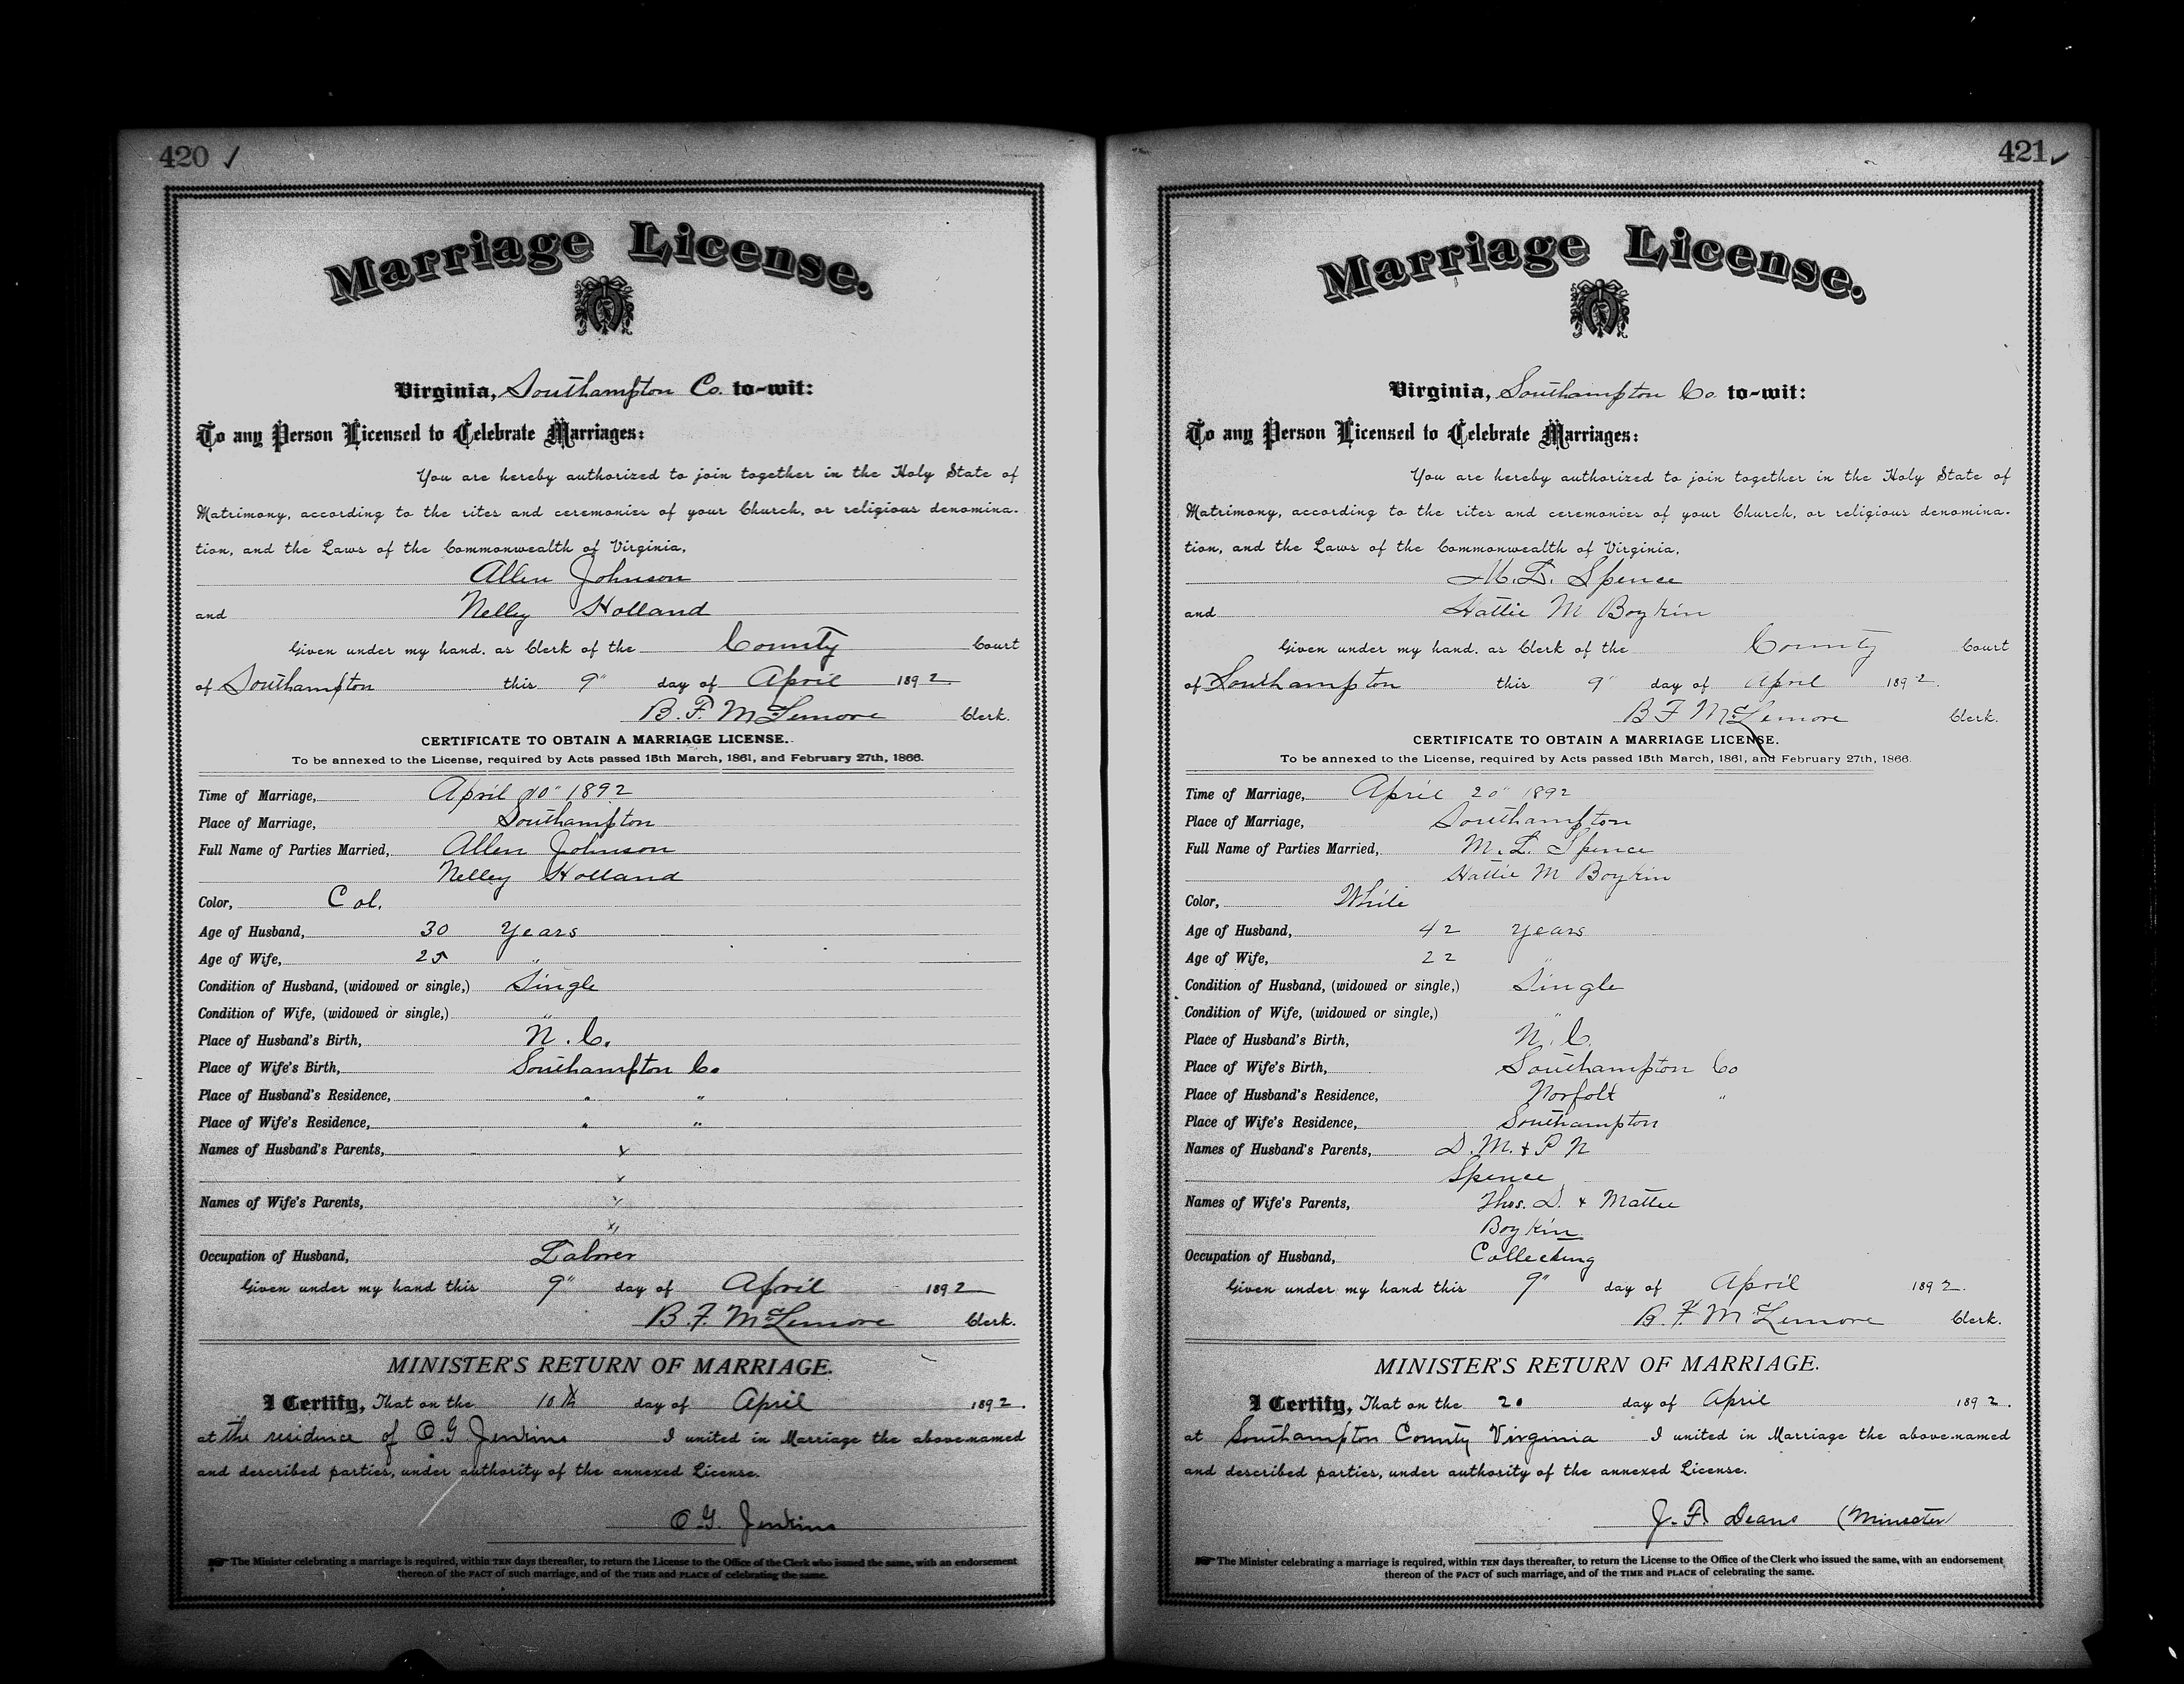 420 ✓
Marriage License.
Virginia, Southampton Co. to-wit:
To any Person Licensed to Celebrate Marriages:
You are hereby authorized to join together in the Holy State of
Matrimony, according to the rites and ceremonies of your Church, or religious denomina-
tion, and the Laws of the Commonwealth of Virginia,
Allen Johnson
and Nelly Holland
Given under my hand, as Clerk of the County Court
of Southampton this 9" day of April 1892.
B. F. McLemore Clerk.
CERTIFICATE TO OBTAIN A MARRIAGE LICENSE.
To be annexed to the License, required by Acts passed 15th March, 1861, and February 27th, 1866.
Time of Marriage, April 10" 1892
Place of Marriage, Southampton
Full Name of Parties Married, Allen Johnson
Nelley Holland
Color, Col.
Age of Husband, 30 Years
Age of Wife, 25 "
Condition of Husband, (widowed or single,) Single
Condition of Wife, (widowed or single,) "
Place of Husband's Birth, N. C.
Place of Wife's Birth, Southampton Co
Place of Husband's Residence, " "
Place of Wife's Residence, " "
Names of Husband's Parents, x
x
Names of Wife's Parents, x
x
Occupation of Husband, Labrer
Given under my hand this 9" day of April 1892
B. F. McLemore Clerk.
MINISTER'S RETURN OF MARRIAGE.
I Certify, That on the 10th day of April 1892.
at the residence of O.G Jenkins I united in Marriage the above-named
and described parties, under authority of the annexed License.
O.G. Jenkins
The Minister celebrating a marriage is required, within TEN days thereafter, to return the License to the Office of the Clerk who issued the same, with an endorsement
thereon of the FACT of such marriage, and of the TIME and PLACE of celebrating the same.
421 ✓
Marriage License.
Virginia, Southampton Co. to-wit:
To any Person Licensed to Celebrate Marriages:
You are hereby authorized to join together in the Holy State of
Matrimony, according to the rites and ceremonies of your Church, or religious denomina-
tion, and the Laws of the Commonwealth of Virginia,
M. L. Spence
and Hattie M Boykin
Given under my hand, as Clerk of the County Court
of Southampton this 9" day of April 1892.
B F McLemore Clerk.
CERTIFICATE TO OBTAIN A MARRIAGE LICENSE.
To be annexed to the License, required by Acts passed 15th March, 1861, and February 27th, 1866.
Time of Marriage, April 20" 1892
Place of Marriage, Southampton
Full Name of Parties Married, M. L. Spence
Hattie M Boykin
Color, White
Age of Husband, 42 years
Age of Wife, 22 "
Condition of Husband, (widowed or single,) Single
Condition of Wife, (widowed or single,) "
Place of Husband's Birth, N. C.
Place of Wife's Birth, Southampton Co
Place of Husband's Residence, Norfolk "
Place of Wife's Residence, Southampton
Names of Husband's Parents, D. M. & P N
Spence
Names of Wife's Parents, Thos. D. & Mattie
Boykin
Occupation of Husband, Collecting
Given under my hand this 9" day of April 1892.
B. F McLemore Clerk.
MINISTER'S RETURN OF MARRIAGE.
I Certify, That on the 20 day of April 1892.
at Southampton County Virginia I united in Marriage the above-named
and described parties, under authority of the annexed License.
J. F. Deans (Minister
The Minister celebrating a marriage is required, within TEN days thereafter, to return the License to the Office of the Clerk who issued the same, with an endorsement
thereon of the FACT of such marriage, and of the TIME and PLACE of celebrating the same.